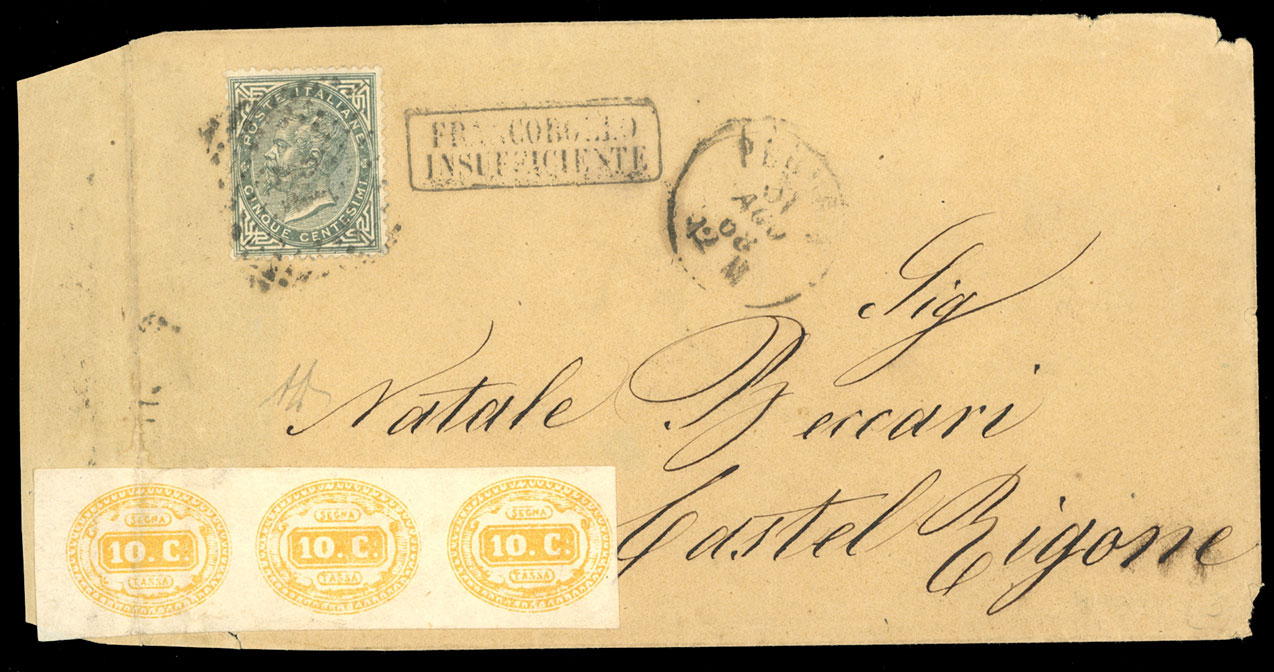 POSTE ITALIANE
CINQUE CENTESIMI
FRANCOBOLLO
INSUFFICIENTE
AGO
Sig
Natale Beccari
Castel Rigone
SEGNA
10. C.
TASSA
SEGNA
10. C.
TASSA
SEGNA
10. C.
TASSA